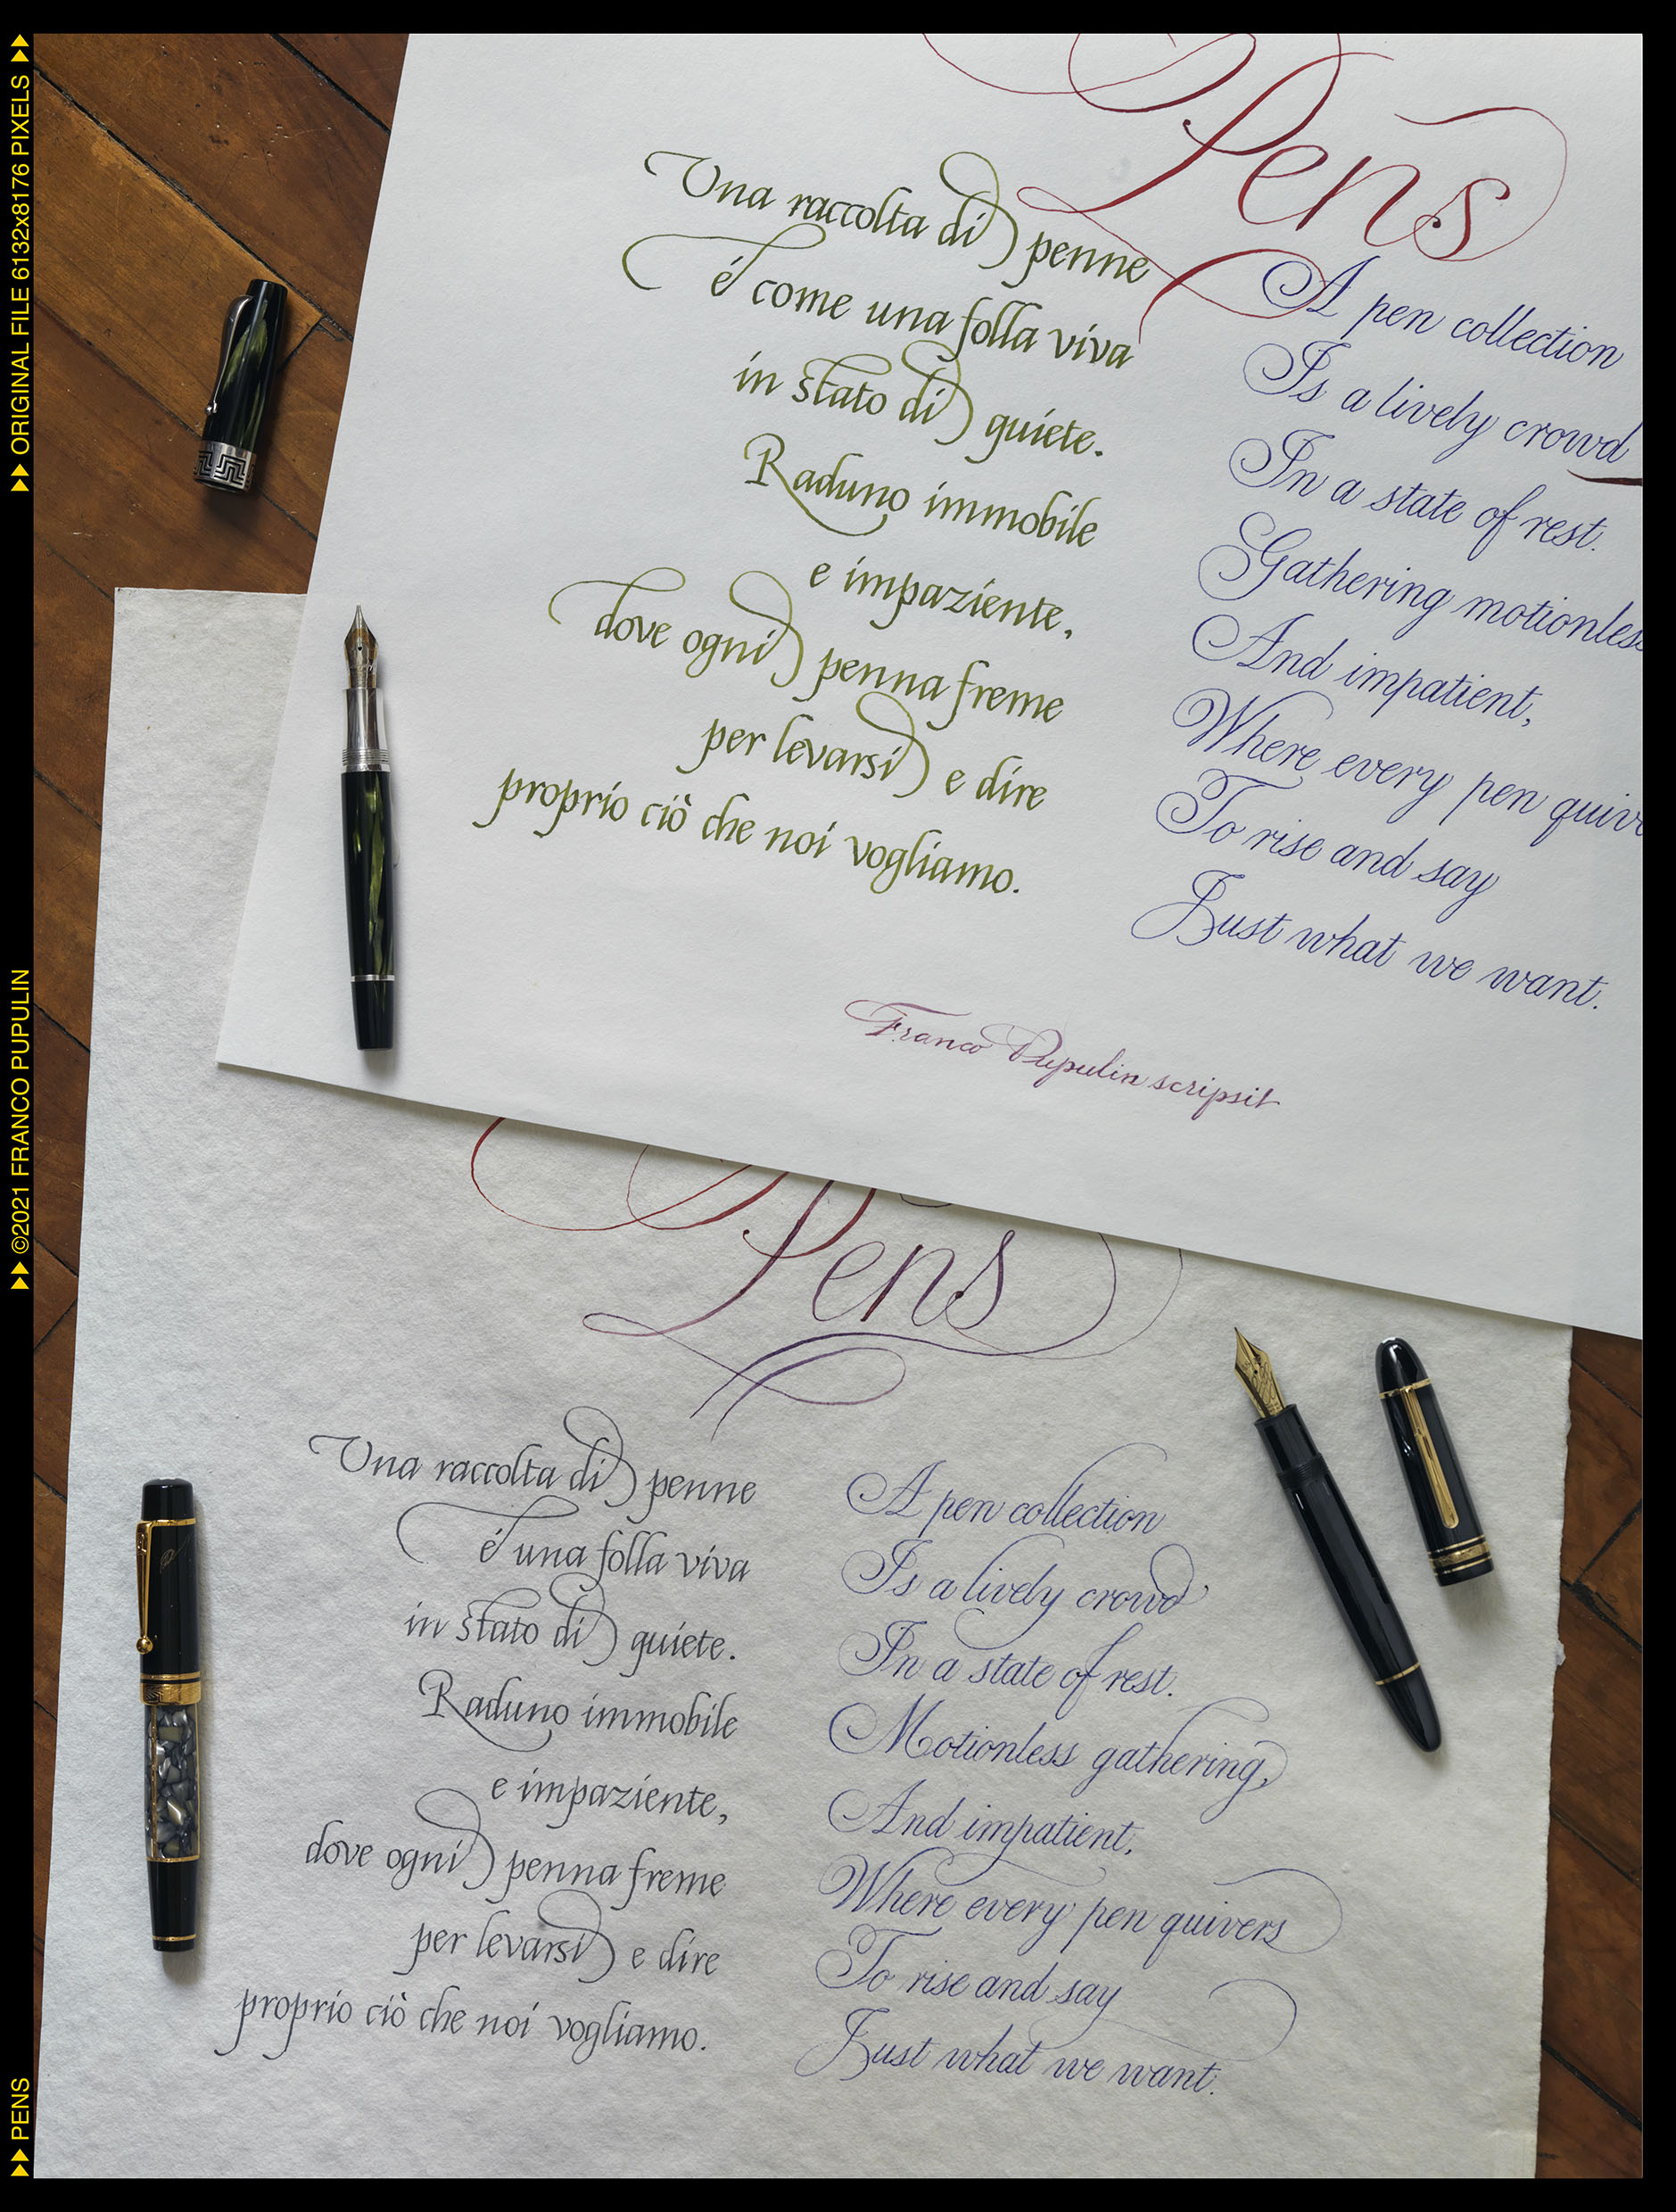 ORIGINAL FILE 6132x8176 PIXELS
©2021 FRANCO PUPULIN
PENS
Pens
Una raccolta di penne
é come una folla viva
in stato di quiete.
Raduno immobile
e impaziente,
dove ogni penna freme
per levarsi e dire
proprio ciò che noi vogliamo.
A pen collection
Is a lively crowd
In a state of rest.
Gathering motionless
And impatient,
Where every pen quiv
To rise and say
Just what we want.
Franco Pupulin scripsit
Pens
Una raccolta di penne
é una folla viva
in stato di quiete.
Raduno immobile
e impaziente,
dove ogni penna freme
per levarsi e dire
proprio ciò che noi vogliamo.
A pen collection
Is a lively crowd
In a state of rest.
Motionless gathering,
And impatient,
Where every pen quivers
To rise and say
Just what we want.